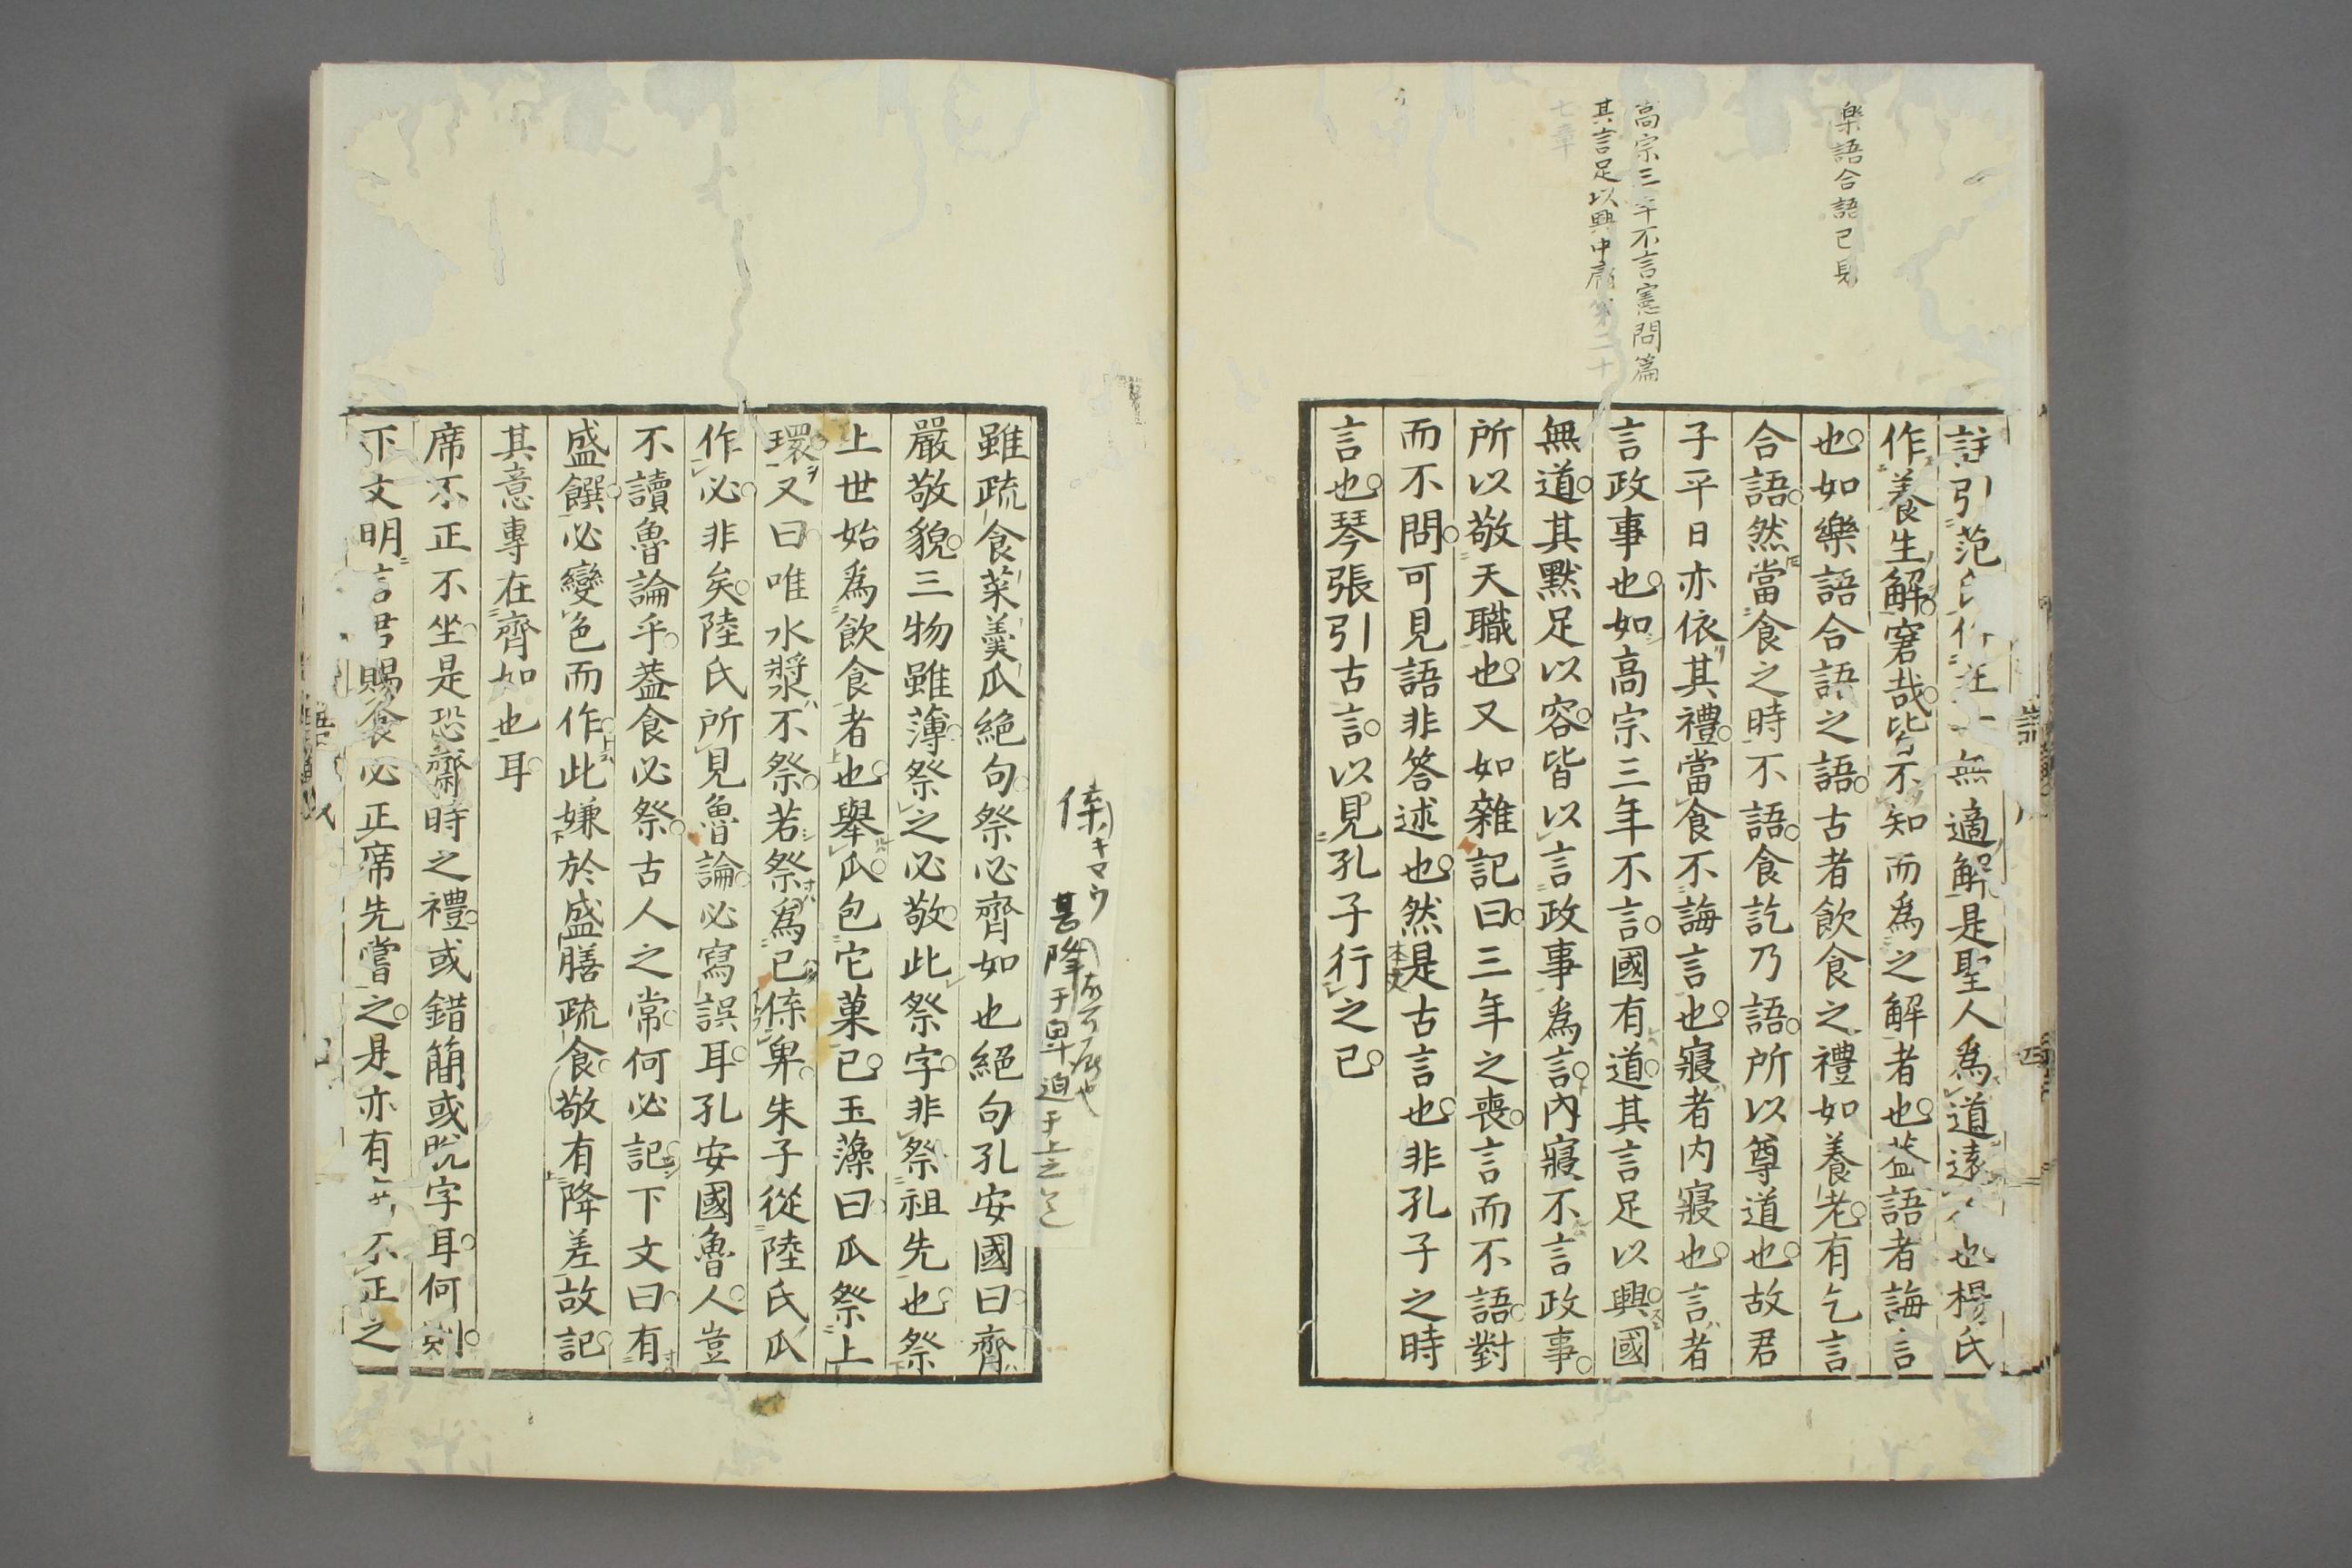 樂語合語已見
高宗三年不言憲問篇
其言足以興中庸第二十
七章
註引范氏作注無適解是聖人爲道遠也楊氏
作養生解窘哉皆不知而爲之解者也蓋語者誨言
也如樂語合語之語古者飲食之禮如養老有乞言
合語然當食之時不語食訖乃語所以尊道也故君
子平日亦依其禮當食不誨言也寢者内寢也言者
言政事也如高宗三年不言國有道其言足以興國
無道其默足以容皆以言政事爲言內寢不言政事
所以敬天職也又如雜記曰三年之喪言而不語對
而不問可見語非答述也然是古言也非孔子之時
言也琴張引古言以見孔子行之已
本文
雖疏食菜羹瓜絕句祭必齊如也絕句孔安國曰齊
嚴敬貌三物雖薄祭之必敬此祭字非祭祖先也祭
上世始爲飲食者也舉瓜包它菓已玉藻曰瓜祭上
環又曰唯水漿不祭若祭爲已傣卑朱子從陸氏瓜
作必非矣陸氏所見魯論必寫誤耳孔安國魯人豈
不讀魯論乎蓋食必祭古人之常何必記下文曰有
盛饌必變色而作此嫌於盛膳疏食敬有降差故記
其意專在齊如也耳
席不正不坐是恐齋時之禮或錯簡或脫字耳何則
下文明言君賜食必正席先嘗之是亦有不正之
甚降于卑迫于上之